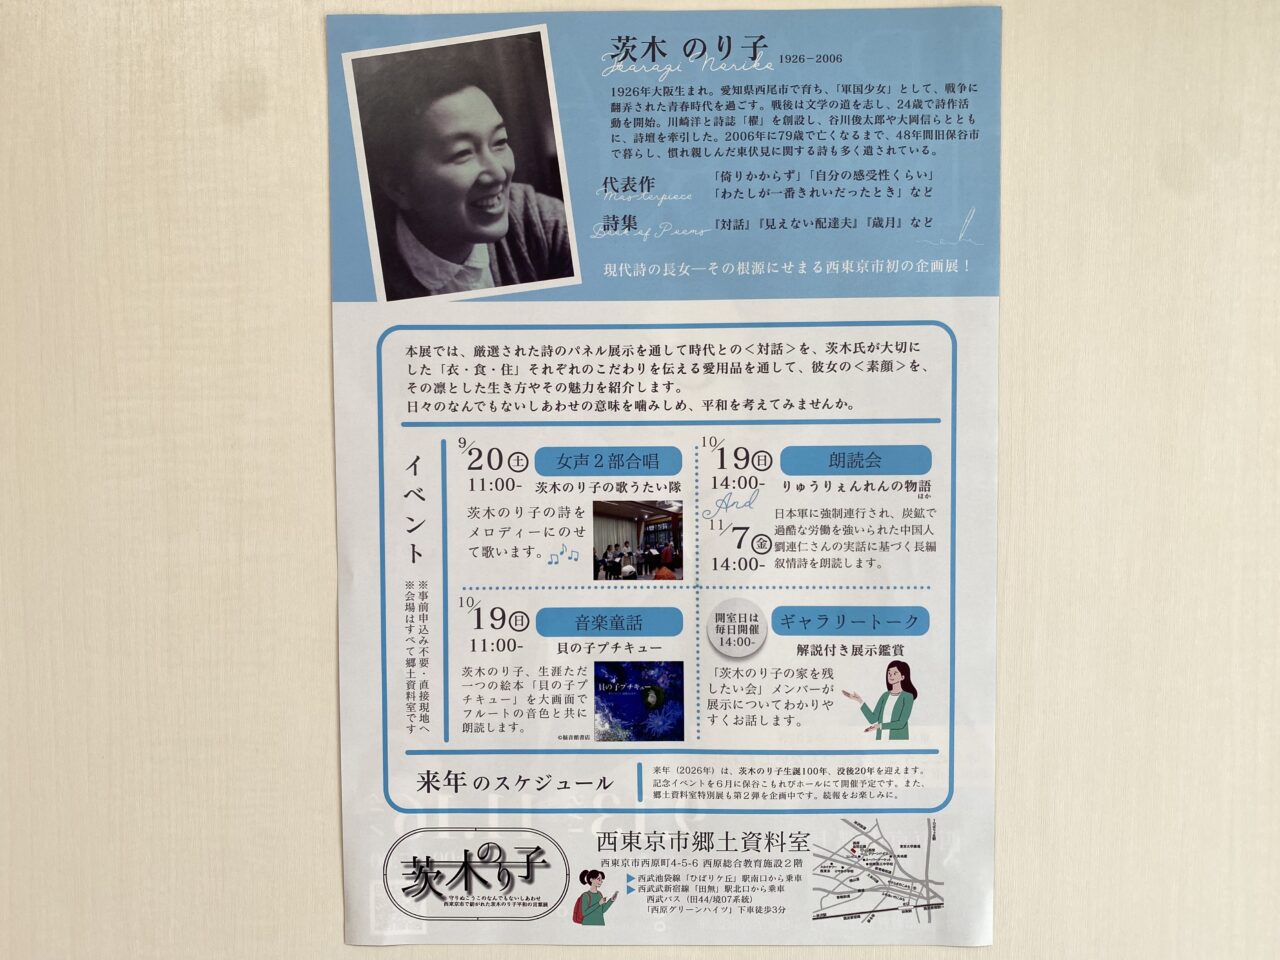 茨木 のり子
Ibaragi Noriko
1926－2006
1926年大阪生まれ。愛知県西尾市で育ち、「軍国少女」として、戦争に
翻弄された青春時代を過ごす。戦後は文学の道を志し、24歳で詩作活
動を開始。川崎洋と詩誌「櫂」を創設し、谷川俊太郎や大岡信らととも
に、詩壇を牽引した。2006年に79歳で亡くなるまで、48年間旧保谷市
で暮らし、慣れ親しんだ東伏見に関する詩も多く遺されている。
代表作
Masterpiece
「倚りかからず」「自分の感受性くらい」
「わたしが一番きれいだったとき」など
詩集
Book of Poems
『対話』『見えない配達夫』『歳月』など
現代詩の長女―その根源にせまる西東京市初の企画展！
本展では、厳選された詩のパネル展示を通して時代との＜対話＞を、茨木氏が大切に
した「衣・食・住」それぞれのこだわりを伝える愛用品を通して、彼女の＜素顔＞を、
その凛とした生き方やその魅力を紹介します。
日々のなんでもないしあわせの意味を噛みしめ、平和を考えてみませんか。
イベント
※事前申込み不要・直接現地へ
※会場はすべて郷土資料室です
9/20(土)
11:00-
女声２部合唱
茨木のり子の歌うたい隊
茨木のり子の詩を
メロディーにのせ
て歌います。
10/19(日)
14:00-
And
11/7(金)
14:00-
朗読会
りゅうりぇんれんの物語
ほか
日本軍に強制連行され、炭鉱で
過酷な労働を強いられた中国人
劉連仁さんの実話に基づく長編
叙情詩を朗読します。
10/19(日)
11:00-
音楽童話
貝の子プチキュー
茨木のり子、生涯ただ
一つの絵本「貝の子プ
チキュー」を大画面で
フルートの音色と共に
朗読します。
貝の子プチキュー
©福音館書店
開室日は
毎日開催
14:00-
ギャラリートーク
解説付き展示鑑賞
「茨木のり子の家を残
したい会」メンバーが
展示についてわかりや
すくお話します。
来年のスケジュール
来年（2026年）は、茨木のり子生誕100年、没後20年を迎えます。
記念イベントを６月に保谷こもれびホールにて開催予定です。また、
郷土資料室特別展も第２弾を企画中です。続報をお楽しみに。
茨木のり子
守りぬこうこのなんでもないしあわせ
西東京市で紡がれた茨木のり子平和の言葉展
西東京市郷土資料室
西東京市西原町4-5-6 西原総合教育施設２階
▶西武池袋線「ひばりケ丘」駅南口から乗車
▶西武新宿線「田無」駅北口から乗車
西武バス（田44/境07系統）
「西原グリーンハイツ」下車徒歩3分